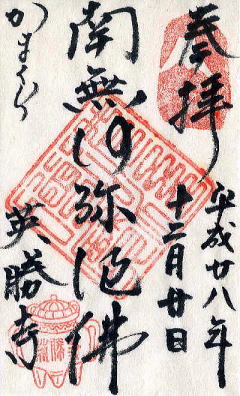 奉拝
平成廿八年
十二月廿日
南無阿弥陀佛
かまくら
英勝寺